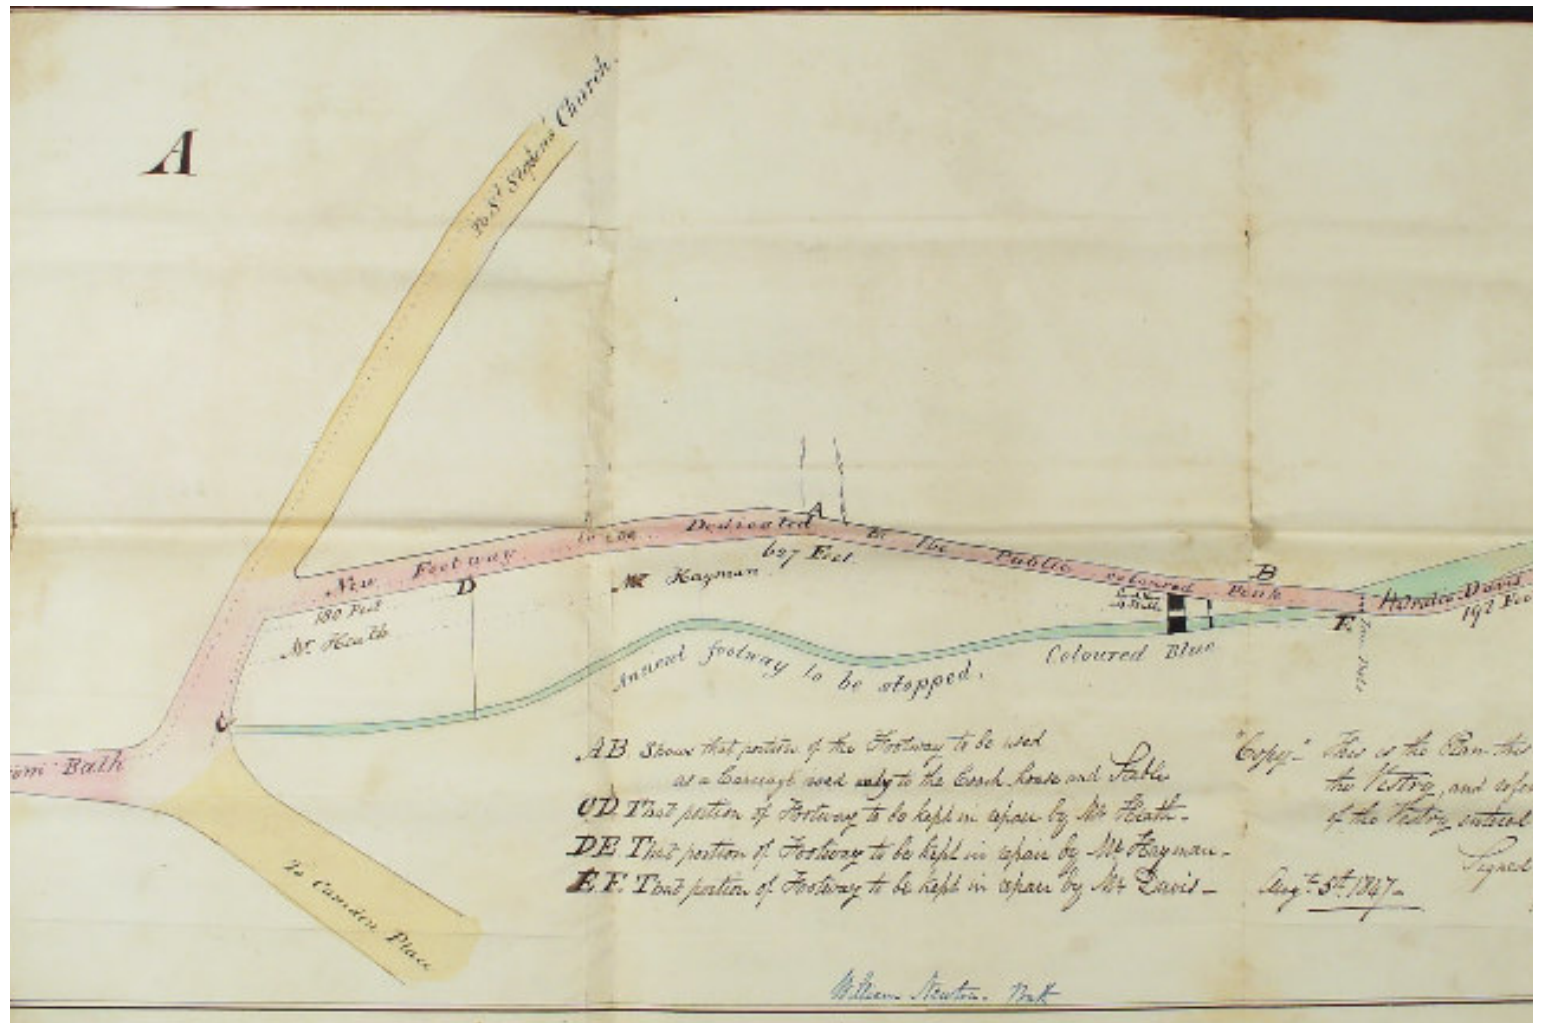 A
To St. Stephens' Church.
New Footway to be Dedicated to the Public coloured Pink
A
B
D
180 Feet
Mr Heath
627 Feet.
Mr Hayman.
E
Horatio Davis
192 Fee
C
Ancient footway to be stopped.
Coloured Blue
om Bath
To Camden Place
AB Shows that portion of the Footway to be used
as a Carriage road only to the Coach house and Stable
CD. That portion of Footway to be kept in repair by Mr Heath-
DE. That portion of Footway to be kept in repair by Mr Hayman-
E.F. That portion of Footway to be kept in repair by Mr Davis-
"Copy." This is the Plan
the Vestry, and refer
of the Vestry entered
Signed
Augt. 5th. 1847-
William Newton. Bath